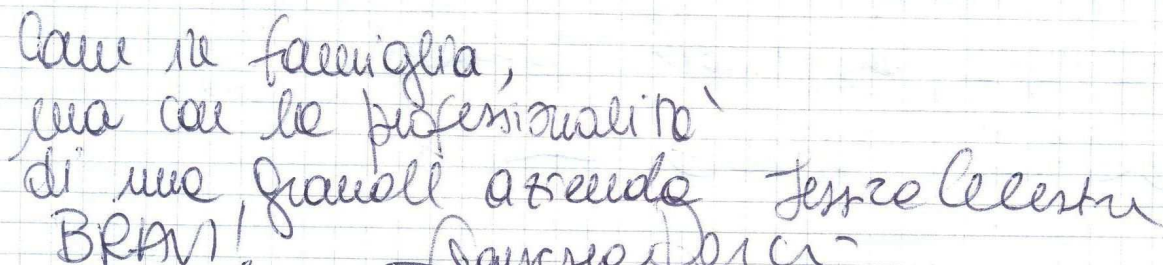 Come in famiglia,
ma con la professionalità
di una grande azienda Jessica
BRAVI!